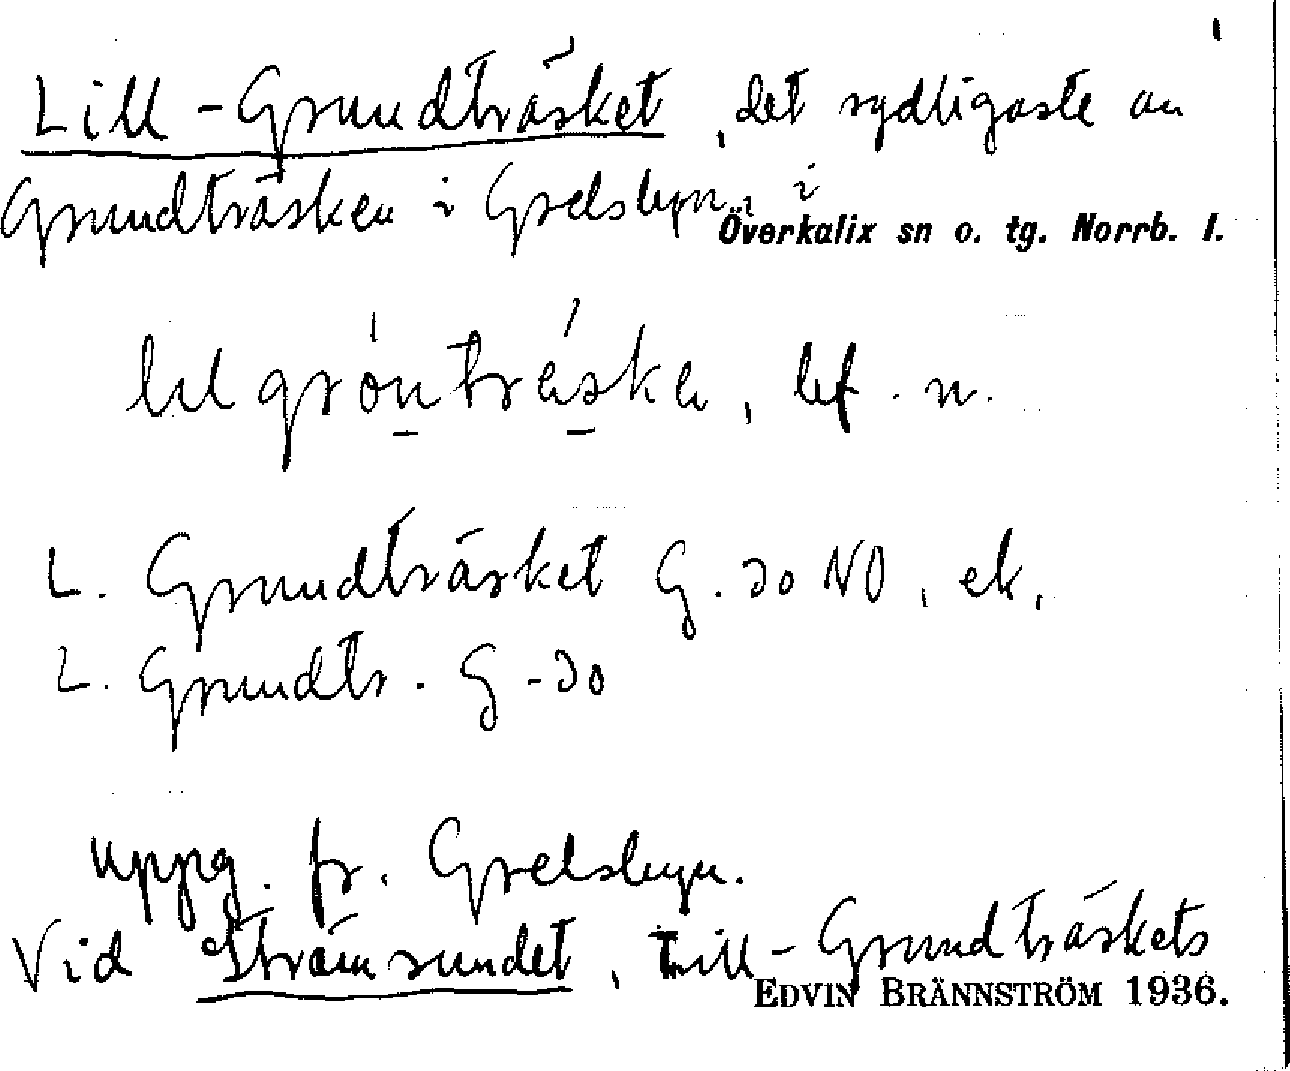 1
Lill-Grundträsket, det sydligaste av
Grundträsken i Grelsbyn i
Överkalix sn o. tg. Norrb. l.
lılgrónträ́ska, bf. n.
L. Grundträsket G. 30 NO, ek.
L. Grundtr. G-30
uppg. fr. Grelsbyn.
Vid Strämsundet, Lill-Grundträskets
EDVIN BRÄNNSTRÖM 1936.